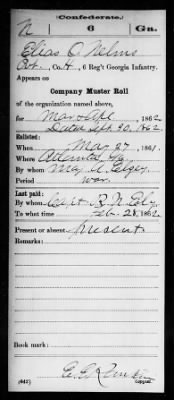 Confederate.
N 6 Ga.
Elias C. Nelms
Pvt., Co. H, 6 Reg't Georgia Infantry.
Appears on
Company Muster Roll
of the organization named above,
for Mar & Apl, 1862
Dated Sept 30, 1862
Enlisted:
When May 27, 1861.
Where Atlanta, Ga
By whom Maj
Period war
Last paid:
By whom Capt. R. N.
To what time Feb. 28, 1862
Present or absent present
Remarks:
Book mark:
(642) Copyist.